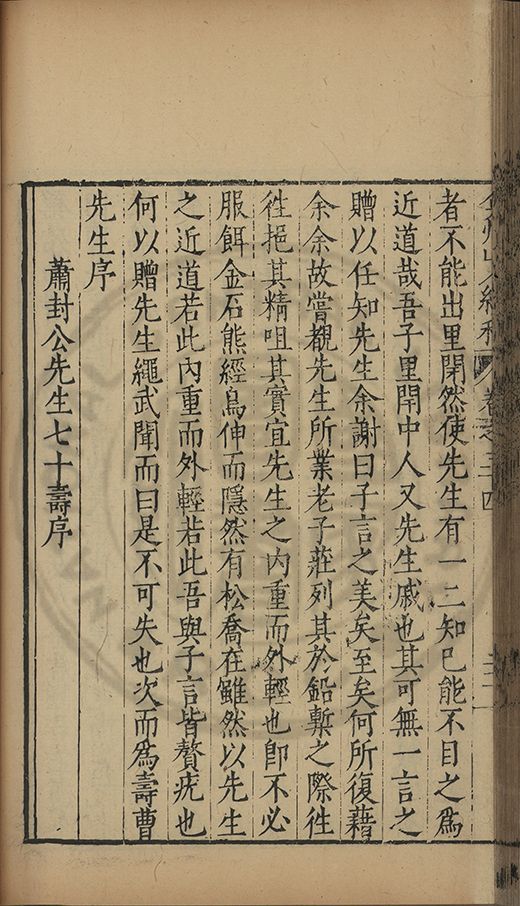 卷之三四
者不能出里閈然使先生有一二知己能不目之為
近道哉吾子里閈中人又先生戚也其可無一言之
贈以任知先生余謝曰子言之美矣至矣何所復藉
余余故嘗覩先生所業老子莊列其於鉛槧之際徃
徃挹其精咀其實宜先生之内重而外輕也即不必
服餌金石熊經鳥伸而隱然有松喬在雖然以先生
之近道若此内重而外輕若此吾與子言皆贅疣也
何以贈先生繩武聞而曰是不可失也次而為壽曹
先生序
蕭封公先生七十壽序